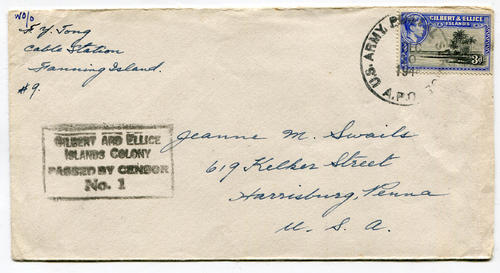 W/O
F. Y. Tong
Cable Station
Fanning Island.
#9.
GILBERT AND ELLICE
ISLANDS COLONY
PASSED BY CENSOR
No. 1
U.S. ARMY
194
A.P.O.
GILBERT & ELLICE
ISLANDS
3d
Jeanne M. Swails
619 Kelker Street
Harrisburg, Penna
U. S. A.